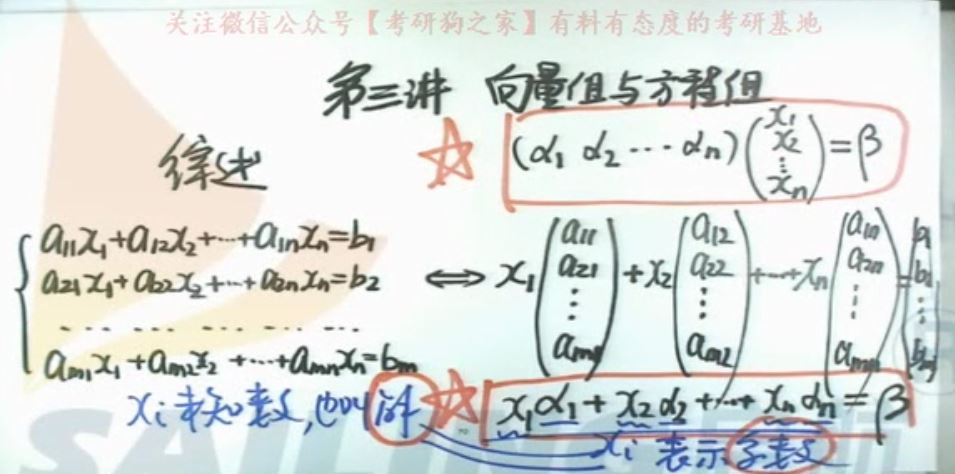 关注微信公众号【考研狗之家】有料有态度的考研基地
第三讲 向量组与方程组
综述
☆ (α₁ α₂ ⋯ αₙ)(x₁ x₂ ⋮ xₙ)=β
a₁₁x₁+a₁₂x₂+⋯+a₁ₙxₙ=b₁
a₂₁x₁+a₂₂x₂+⋯+a₂ₙxₙ=b₂
⋯⋯⋯⋯
aₘ₁x₁+aₘ₂x₂+⋯+aₘₙxₙ=bₘ
⟺ x₁(a₁₁ a₂₁ ⋮ aₘ₁)+x₂(a₁₂ a₂₂ ⋮ aₘ₂)+⋯+xₙ(a₁ₙ a₂ₙ ⋮ aₘₙ)=(b₁ b₂ ⋮ bₘ)
☆ x₁α₁+x₂α₂+⋯+xₙαₙ=β
xᵢ未知数,
解
xᵢ 表示系数
SAILING